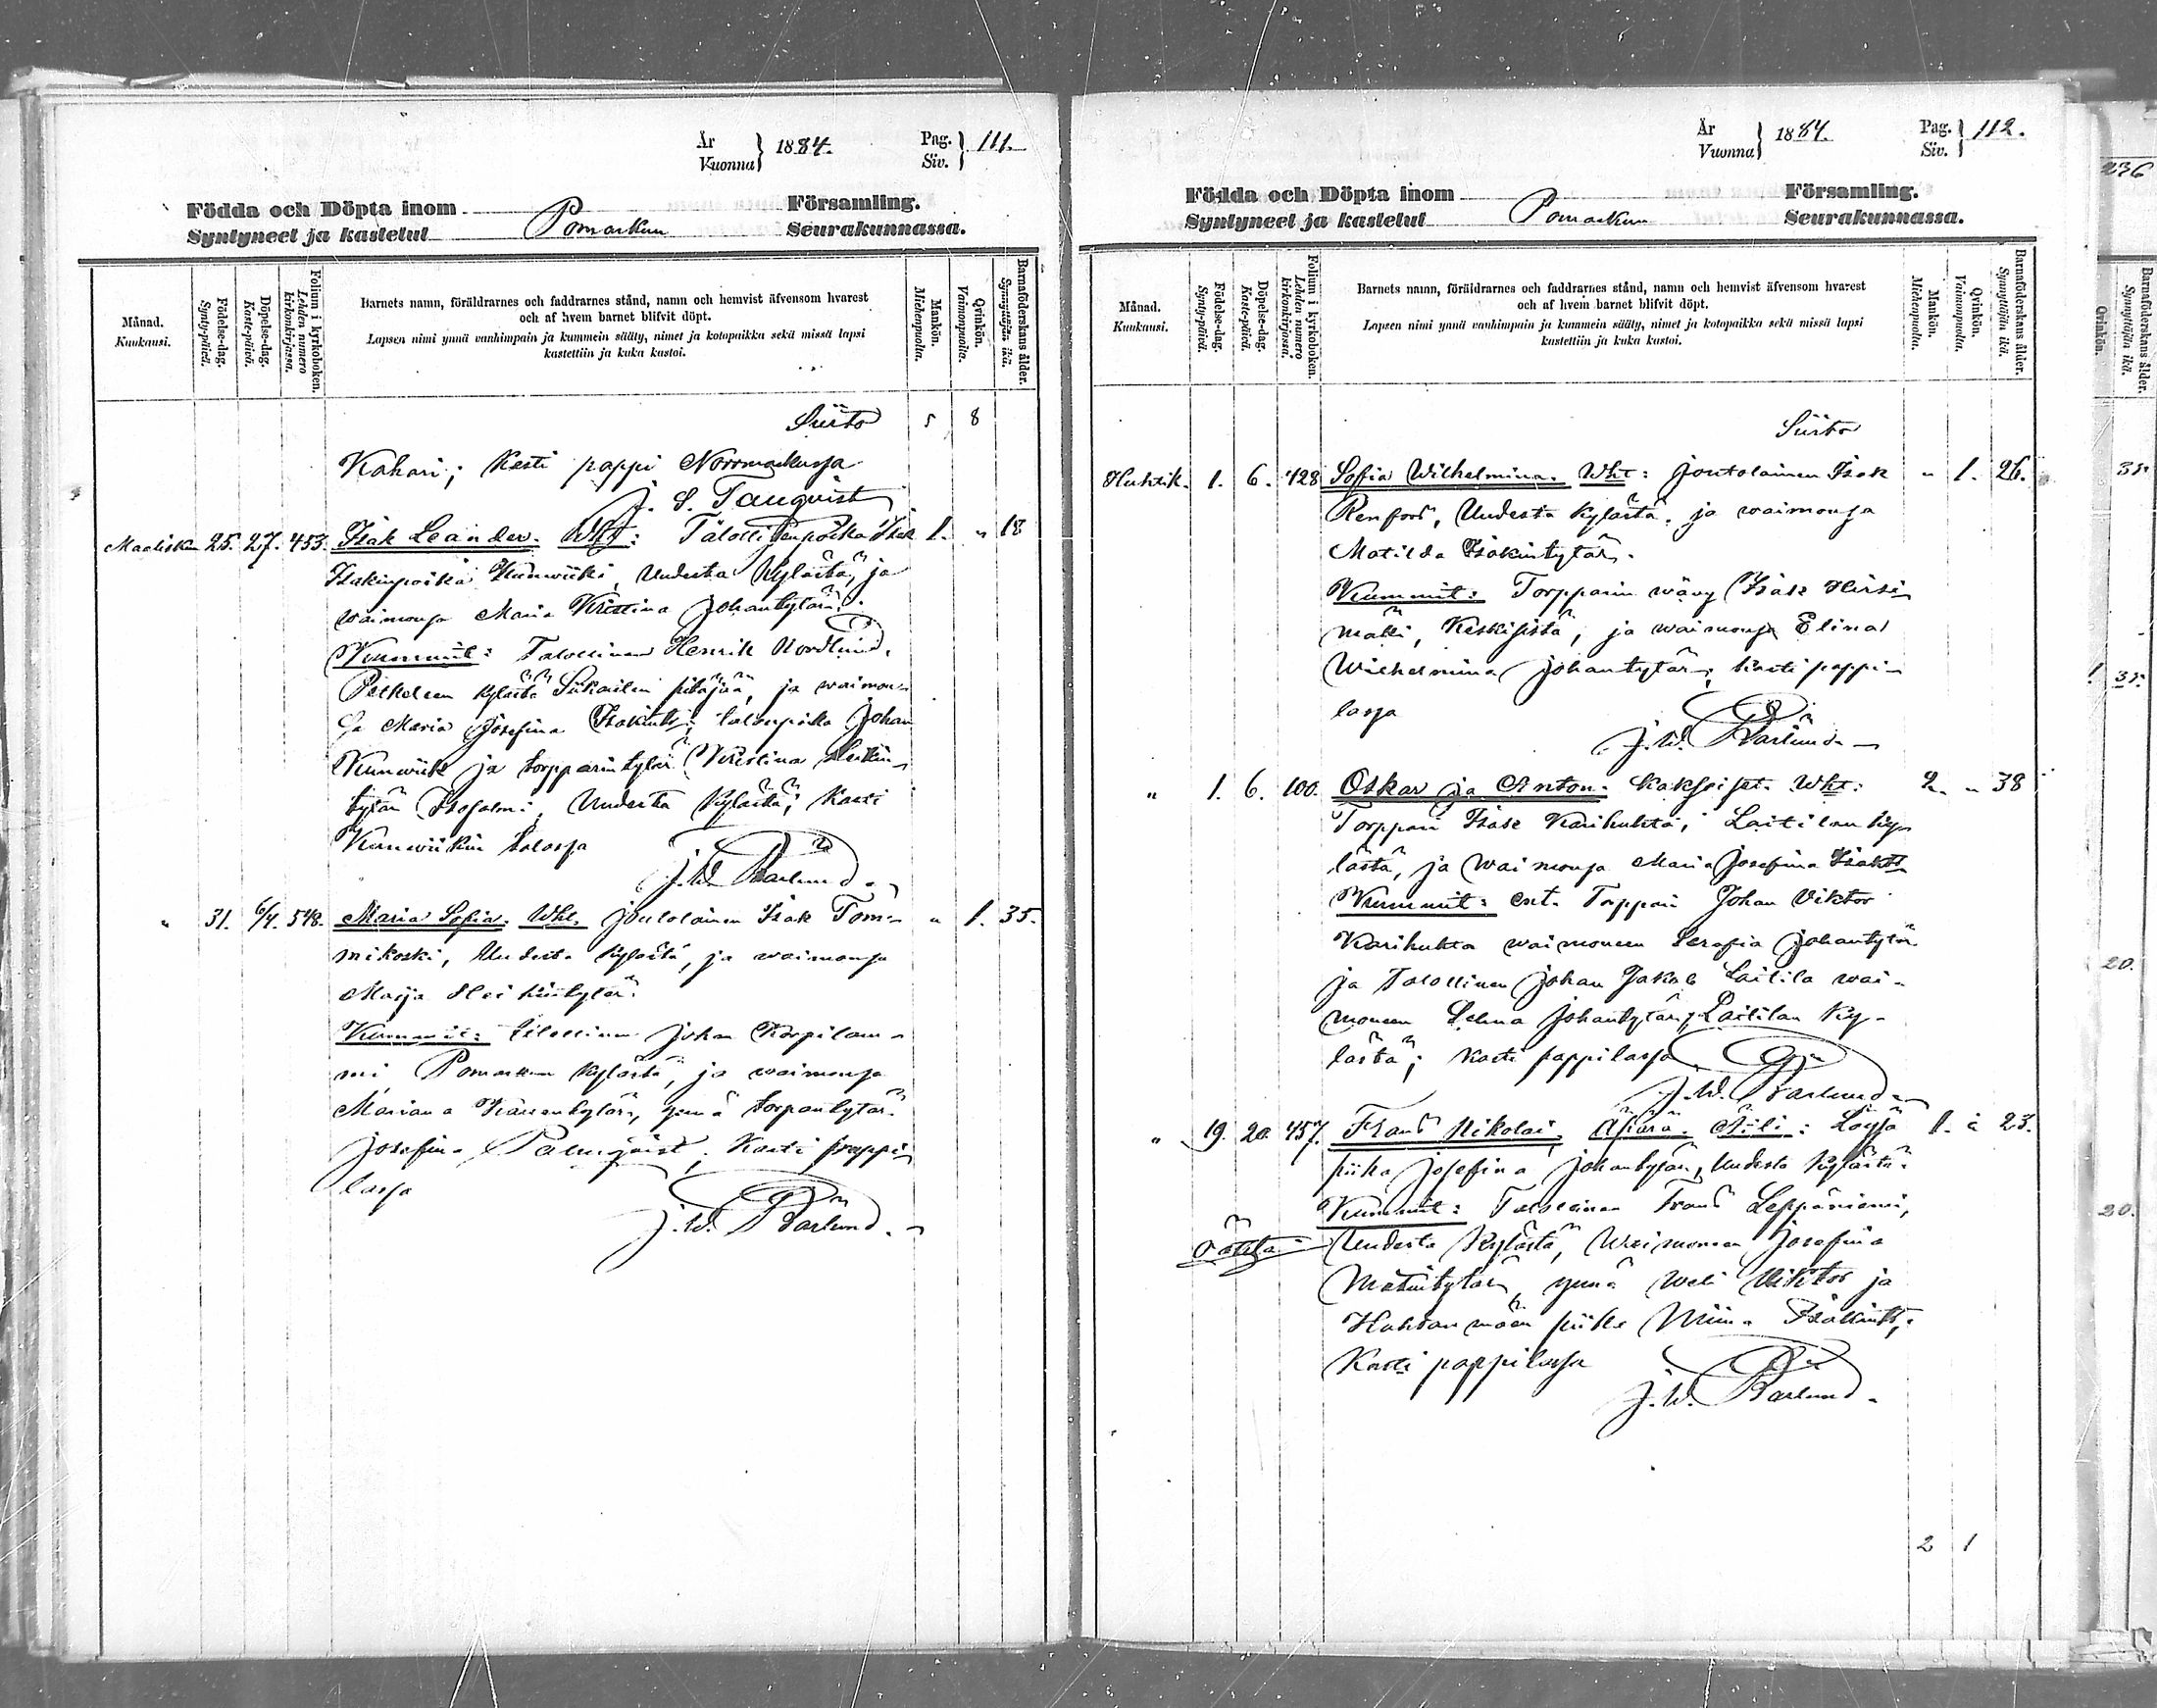 År
Vuonna } 1884. Pag.
Siv. } 111.
Födda och Döpta inom Församling.
Pomarkun
Syntyneet ja kastetut Seurakunnassa.
Månad.
Kuukausi.
Födelse-dag.
Synty-päivä.
Döpelse-dag.
Kaste-päivä.
Folium i kyrkoboken.
Lehden numero
kirkonkirjassa.
Barnets namn, föräldrarnes och faddrarnes stånd, namn och hemvist äfvensom hvarest
och af hvem barnet blifvit döpt.
Lapsen nimi ynnä vanhimpain ja kummein sääty, nimet ja kotopaikka sekä missä lapsi
kastettiin ja kuka kastoi.
Mankön.
Miehenpuolta.
Qvinkön.
Vaimonpuolta.
Barnaföderskans ålder.
Synnyttäjän ikä.
Siirto 5 8
Kahari; Kasti pappi Norrmarkussa
J. S. Tanqvist
Maaliskuu 25. 27. 453. Isak Leander. Wht: Talollisenpoika Isak 1. " 18
Isakinpoika Kunwiiki, Uudesta Kylästä, ja
waimonsa Maria Kristina Johantytär.
Kummit: Talollinen Henrik Nordlund,
kylästä Siikaisten pitäjää, ja waimon-
sa Maria Josefina Isakintr; talonpoika Johan
Kunwiik ja torpparintytär Kristina Heikin-
tytär Uudesta Kylästä; Kasti
Kunwiikin talossa
J. W. Barlund.
" 31. 6/4. 548. Maria Sofia. Wht. joutolainen Isak Tom- " 1. 35.
mikoski, Uudesta kylästä, ja waimonsa
Marja Heikintytär.
Kummit: talollinen Johan Korpilam-
mi Pomarkun kylästä, ja waimonsa
Mariana ynnä torpantytär
Josefina Palmqvist; Kasti pappi-
lassa
J. W. Barlund.
År
Vuonna } 1884. Pag.
Siv. } 112.
Födda och Döpta inom Församling.
Pomarkun
Syntyneet ja kastetut Seurakunnassa.
Månad.
Kuukausi.
Födelse-dag.
Synty-päivä.
Döpelse-dag.
Kaste-päivä.
Folium i kyrkoboken.
Lehden numero
kirkonkirjassa.
Barnets namn, föräldrarnes och faddrarnes stånd, namn och hemvist äfvensom hvarest
och af hvem barnet blifvit döpt.
Lapsen nimi ynnä vanhimpain ja kummein sääty, nimet ja kotopaikka sekä missä lapsi
kastettiin ja kuka kastoi.
Mankön.
Miehenpuolta.
Qvinkön.
Vaimonpuolta.
Barnaföderskans ålder.
Synnyttäjän ikä.
Siirto
Huhtik. 1. 6. 428 Sofia Wilhelmina. Wht: joutolainen Isak " 1. 26.
Renfors, Uudesta kylästä, ja waimonsa
Matilda Isakintytär.
Kummit: Torpparin wäwy Isak Hirsi-
mäki, ja waimonsa Elina
Wilhelmina Johantytär; kasti pappi-
lassa
J. W. Barlund.
" 1. 6. 100. Oskar ja Anton. kaksoiset. Wht: 2. " 38
Torppari Isak Karihuhta, Laitilan ky-
lästä, ja waimonsa Maria Josefina Isakts
Kummit: ent. Torppari Johan Viktor
Karihuhta waimoneen Serafia Johantytär
ja Talollinen Johan Jakob Laitila wai-
moneen Selma Johantytär, Laitilan Ky-
lästä; kasti pappilassa
J. W. Barlund
" 19. 20. 457. Frans Nikolai, Äpärä. Äiti: Löysä 1. " 23.
piika Josefina Johantytär, Uudesta kylästä.
Kummit: Talollinen Frans Leppäniemi,
Uudesta Kylästä, Waimoneen Josefina
Matintytär, ynnä weli Viktor ja
piika Miina Isakintr,
Kasti pappilassa
J. W. Barlund.
2 1
236
Qvinkön.
Barnaföderskans ålder.
Synnyttäjän ikä.
35.
1 35.
20.
20.